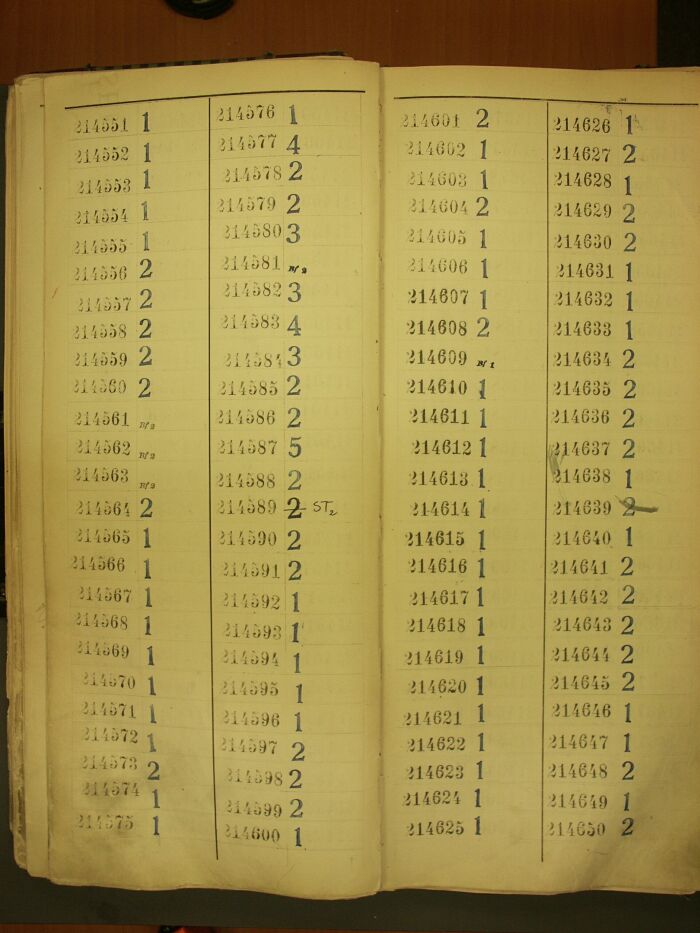 214551 1
214552 1
214553 1
214554 1
214555 1
214556 2
214557 2
214558 2
214559 2
214560 2
214561 N/2
214562 N/2
214563 N/2
214564 2
214565 1
214566 1
214567 1
214568 1
214569 1
214570 1
214571 1
214572 1
214573 2
214574 1
214575 1
214576 1
214577 4
214578 2
214579 2
214580 3
214581 N/2
214582 3
214583 4
214584 3
214585 2
214586 2
214587 5
214588 2
214589 2 ST2
214590 2
214591 2
214592 1
214593 1
214594 1
214595 1
214596 1
214597 2
214598 2
214599 2
214600 1
214601 2
214602 1
214603 1
214604 2
214605 1
214606 1
214607 1
214608 2
214609 N/1
214610 1
214611 1
214612 1
214613 1
214614 1
214615 1
214616 1
214617 1
214618 1
214619 1
214620 1
214621 1
214622 1
214623 1
214624 1
214625 1
214626 1
214627 2
214628 1
214629 2
214630 2
214631 1
214632 1
214633 1
214634 2
214635 2
214636 2
214637 2
214638 1
214639 2
214640 1
214641 2
214642 2
214643 2
214644 2
214645 2
214646 1
214647 1
214648 2
214649 1
214650 2